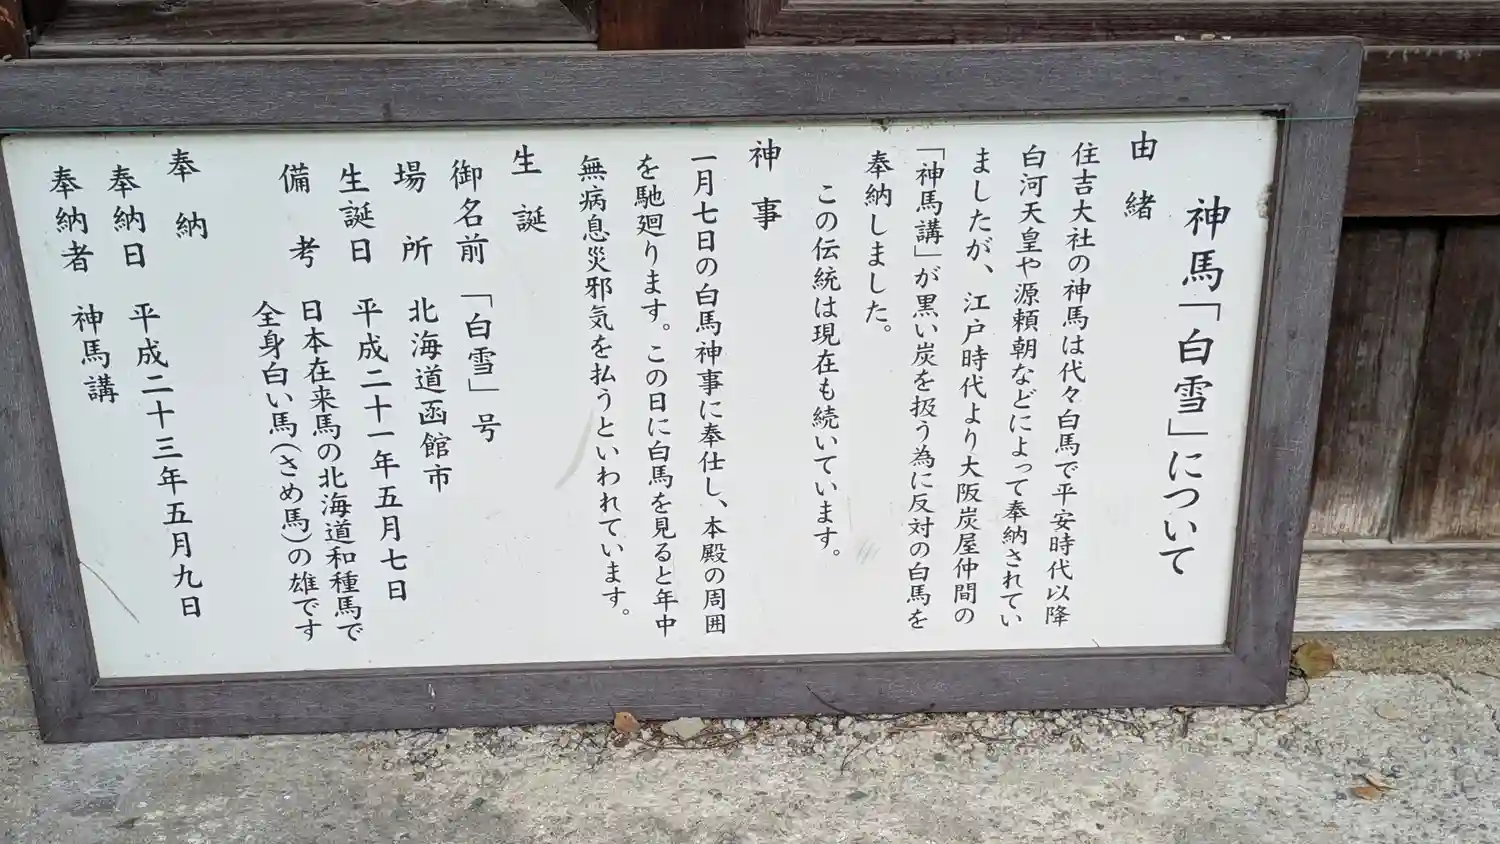 神馬「白雪」について
由緒
住吉大社の神馬は代々白馬で平安時代以降
白河天皇や源頼朝などによって奉納されてい
ましたが、江戸時代より大阪炭屋仲間の
「神馬講」が黒い炭を扱う為に反対の白馬を
奉納しました。
この伝統は現在も続いています。
神事
一月七日の白馬神事に奉仕し、本殿の周囲
を馳廻ります。この日に白馬を見ると年中
無病息災邪気を払うといわれています。
生誕
御名前 「白雪」号
場所 北海道函館市
生誕日 平成二十一年五月七日
備考 日本在来馬の北海道和種馬で
全身白い馬(さめ馬)の雄です
奉納
奉納日 平成二十三年五月九日
奉納者 神馬講